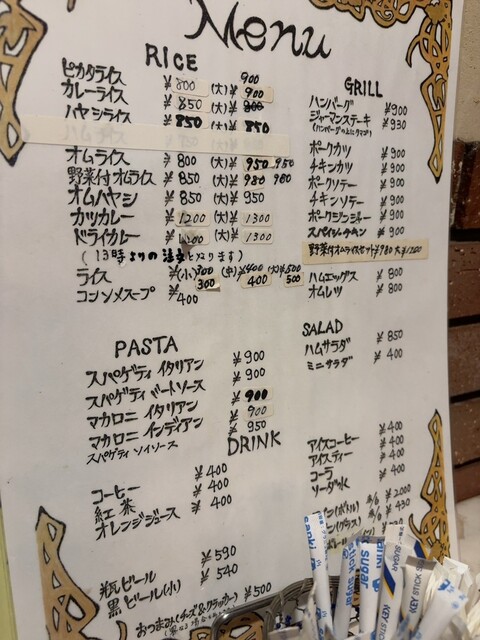 Menu
RICE
ピカタライス 900
カレーライス ¥800 (大)¥900
ハヤシライス ¥850 (大)¥
¥850 (大)¥850
オムライス ¥800 (大)¥950 950
野菜付オムライス ¥850 (大)¥980 980
オムハヤシ ¥850 (大)¥950
カツカレー ¥1200 (大)¥1300
ドライカレー (大)¥1300
(13時よりの注文となります)
ライス ¥(小)300 (中)¥400 (大)¥500
300 400 500
コンソメスープ ¥400
PASTA
スパゲティ イタリアン ¥900
スパゲティ ミートソース ¥900
マカロニ イタリアン ¥900
マカロニ インディアン ¥900
スパゲティ ソイソース ¥950
DRINK
コーヒー ¥400
紅茶 ¥400
オレンジジュース ¥400
瓶ビール ¥590
黒ビール(小) ¥540
おつまみ(チーズ&クラッカー) ¥500
GRILL
ハンバーグ ¥900
ジャーマンステーキ ¥930
ポークカツ ¥900
チキンカツ ¥900
ポークソテー ¥900
チキンソテー ¥900
ポークジンジャー ¥900
スパイシーチキン ¥900
野菜付オムライスセット¥980 大¥1200
ハムエッグス ¥800
オムレツ ¥800
SALAD
ハムサラダ ¥850
ミニサラダ ¥400
アイスコーヒー ¥400
アイスティー ¥400
コーラ ¥400
ソーダ水 ¥400
イン(ボトル) ¥2000
ン(グラス) ¥430
Stick sugar
SUGAR
KEY STICKS